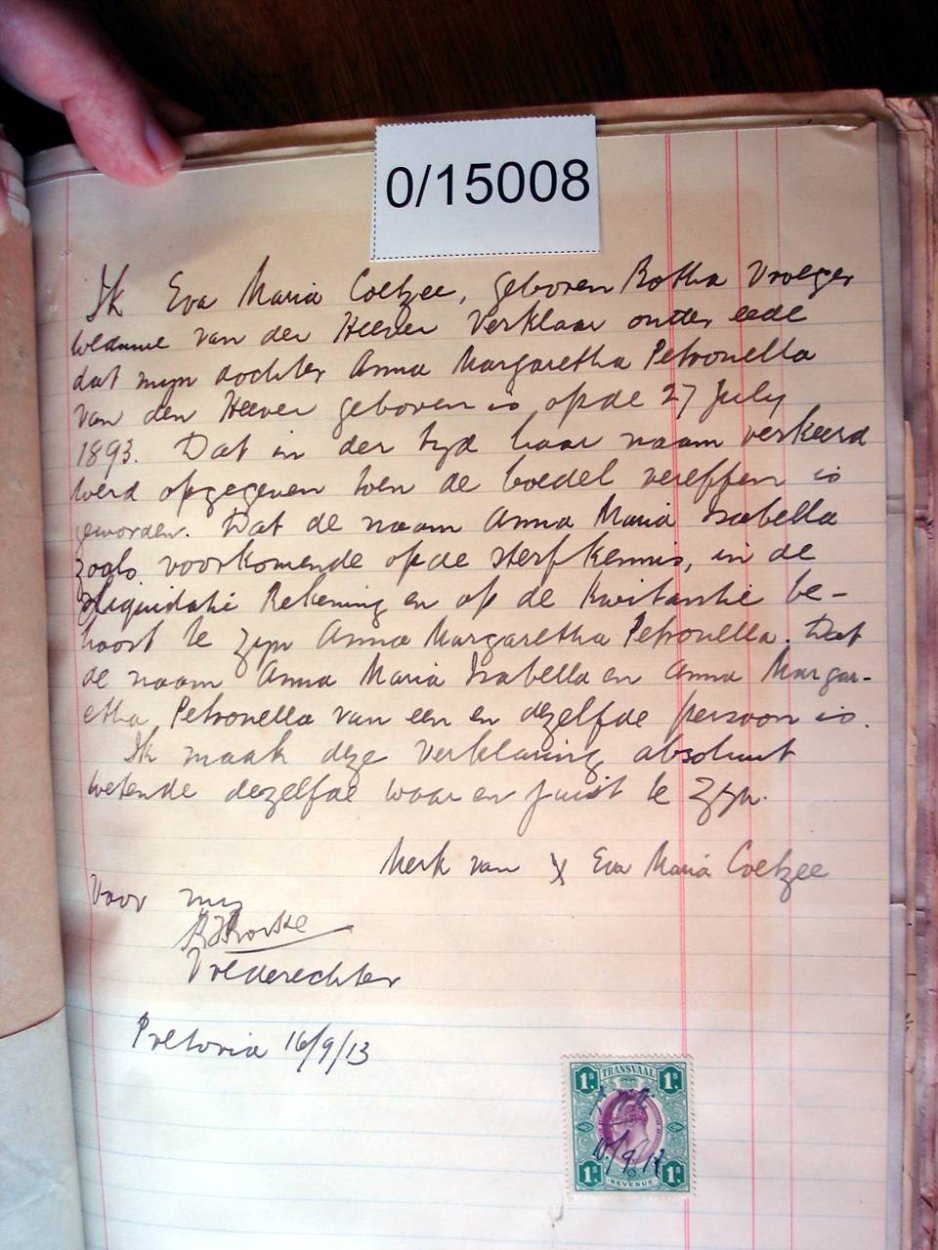 0/15008
Ik Eva Maria Coetzee, geboren Botha Vroeger
weduwe van der Heever Verklaar onder eede
dat myn dochter Anna Margaretha Petronella
van den Heever geboren is op de 27 July
1893. Dat in der tyd haar naam verkeerd
werd opgegeven toen de boedel vereffen is
geworden. Dat de naam Anna Maria Isabella
zoals voorkomende op de sterfkennis, in de
liquidatie Rekening en op de Kwitantie be-
hoort te zyn Anna Margaretha Petronella. Dat
de naam Anna Maria Isabella en Anna Margar-
etha Petronella van een en dezelfde persoon is.
Ik maak deze verklaring absoluut
wetende dezelfde waar en juist te zyn.
Merk van X Eva Maria Coetzee
Voor my
Vrederechter
Pretoria 16/9/13
TRANSVAAL
1s 1s
1s 1s
REVENUE